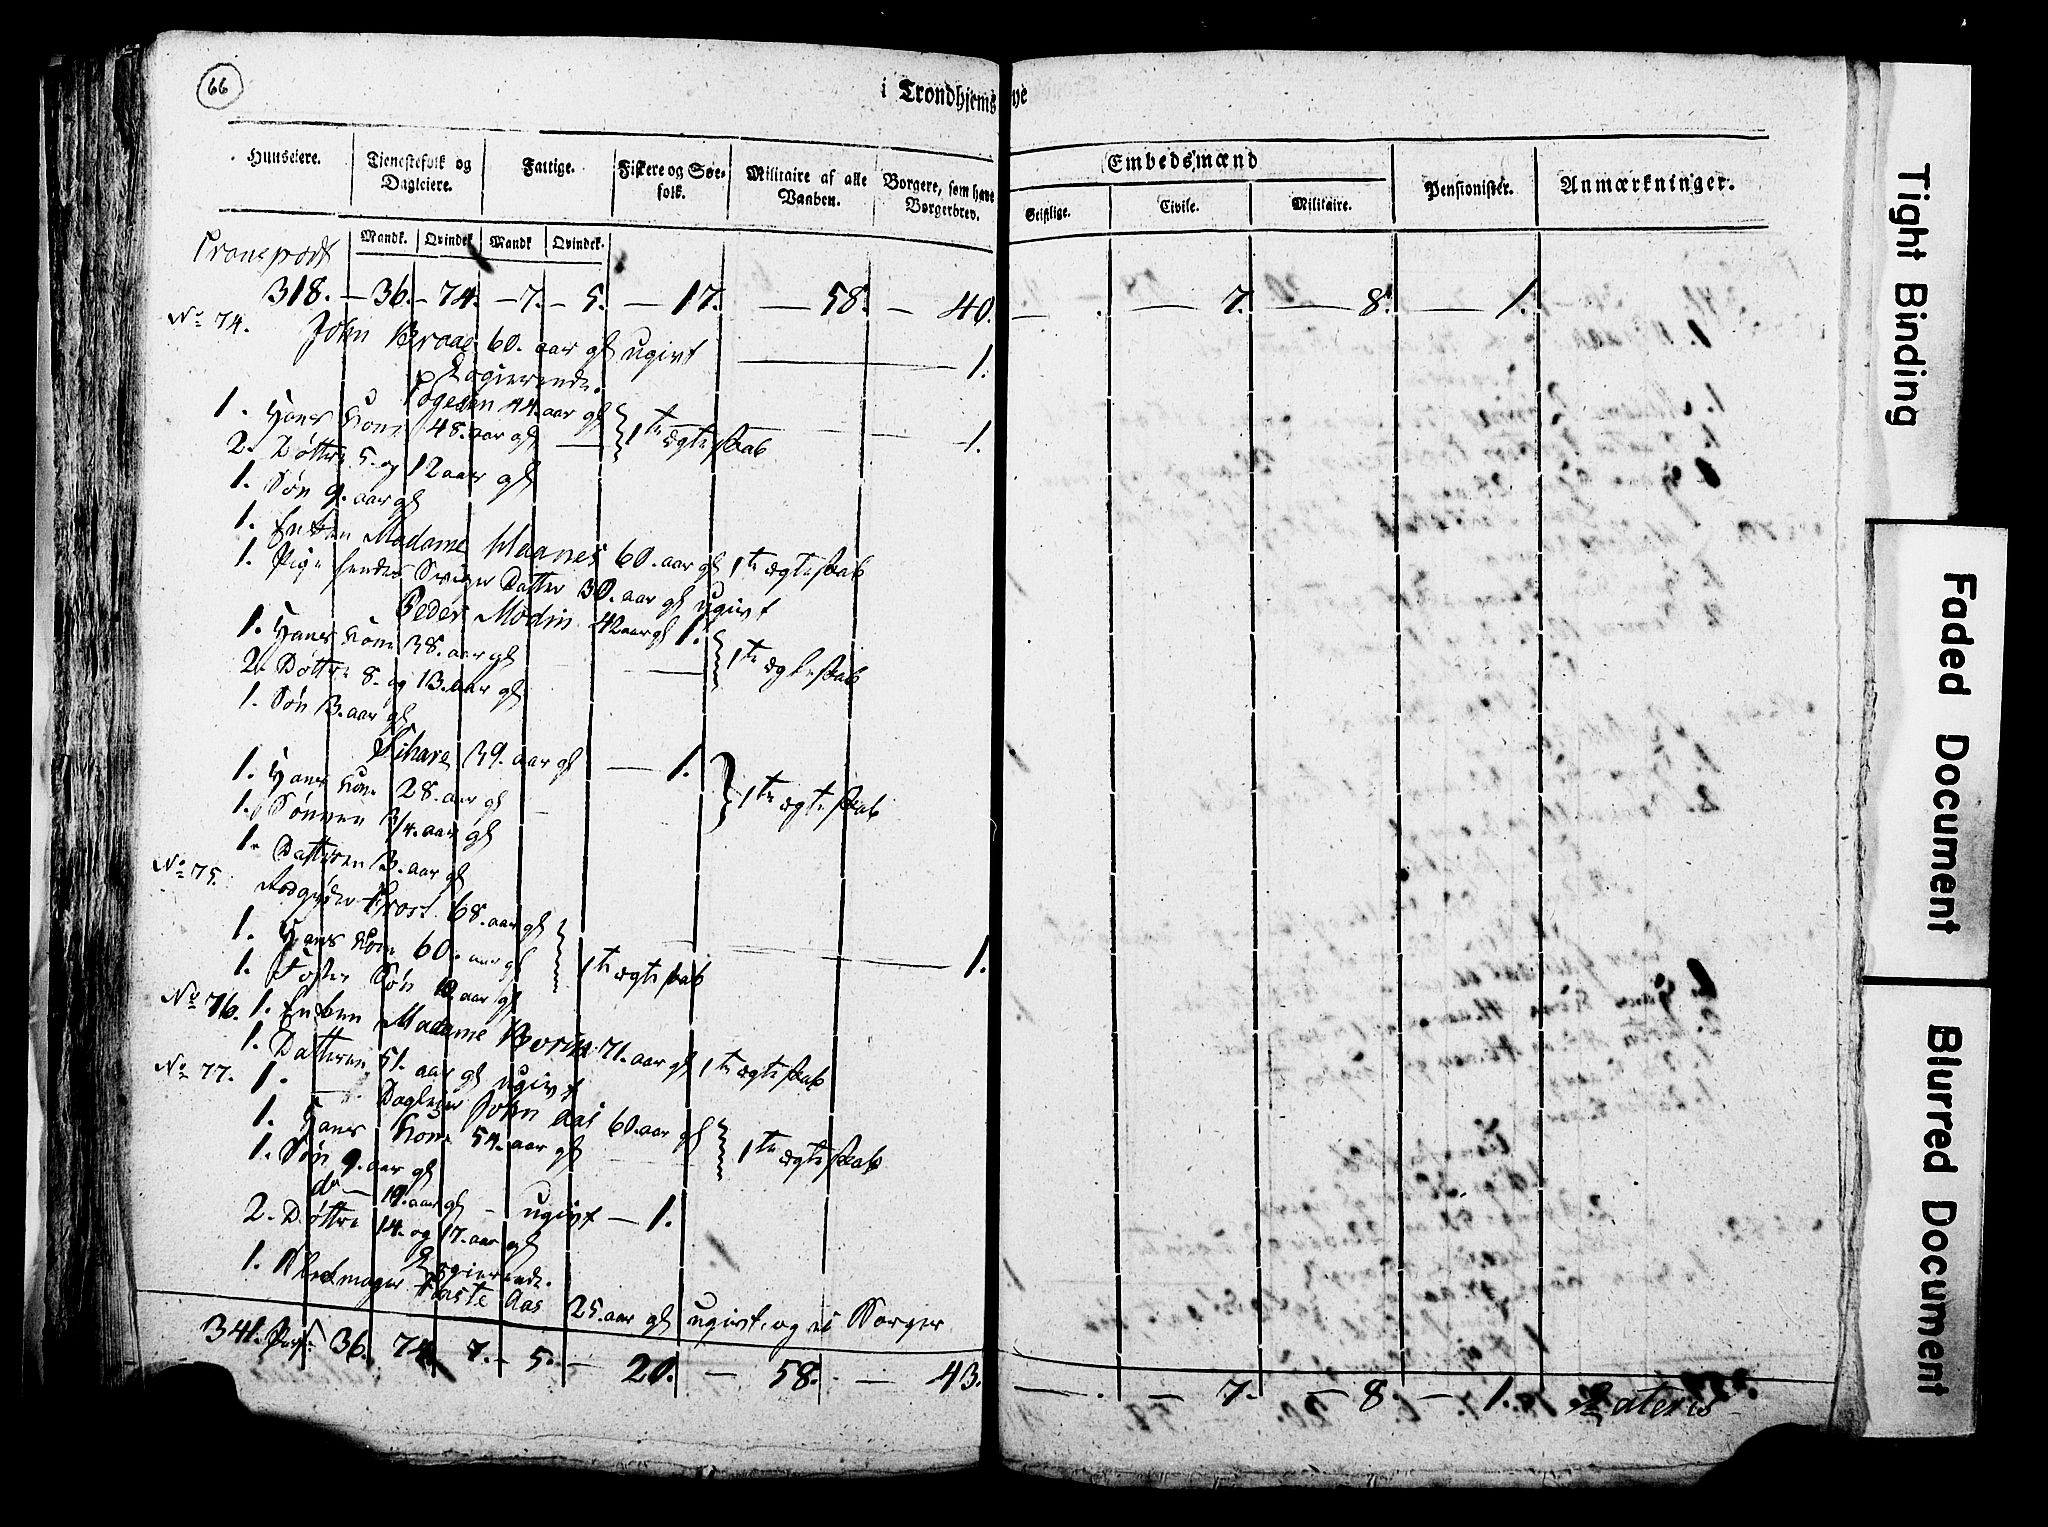 66
i Trondhjems bye
Huuseiere. Tienestefolk og Dagleiere. Fattige. Fiskere og Søefolk. Militaire af alle Vaaben. Borgere, som have Borgerbrev. Embedsmænd Pensionister. Anmærkninger.
Geistlige. Civile. Militaire.
Mandk. Qvindek. Mandk Qvindek.
Transport
318. – 36. – 74. – 7. – 5. – 17. – 58. – 40. – . – 7. – 8. – 1.
No 74. John Braae 60. aar gl ugivt — 1.
Logierende.
Pogesen 44. aar gl
1. Hans Kone 48. aar gl — 1te ægteskab — 1.
2. Døttre 5. og 12 aar gl
1. Søn 9. aar gl
1. Enken Madame Haanes 60. aar gl 1te ægteskab
1. Pige hendes Sviger Datter 30. aar gl ugivt
Peder Modin 42 aar gl 1.
1. Hans Kone 38. aar gl — 1te ægteskab
2. Døttre 8. og 13. aar gl
1. Søn 3. aar gl
39. aar gl — 1.
1. Hans Kone 28. aar gl 1te ægteskab
1. Sønnen 3/4. aar gl
1. Datteren 3. aar gl
No 75. Trost 68. aar gl
1. Hans Kone 60. aar gl 1te ægteskab — 1.
1. Foster Søn aar gl
No 76. 1. Enken Madame 71. aar gl 1te ægteskab
1. Datteren 51. aar gl ugivt
No 77. 1. Dagleier John Aas 60. aar gl
1. Hans Kone 54. aar gl 1te ægteskab
1. Søn 9. aar gl
do — 19. aar gl – ugivt – 1.
2. Døttre 14. og 17. aar gl
Logierende.
1. Aas 25. aar gl ugivt, og
341. 36. 74. 7. – 5. – 20. – 58. – 43. – . – 7. – 8. – 1. Lateris
Tight Binding
Faded Document
Blurred Document